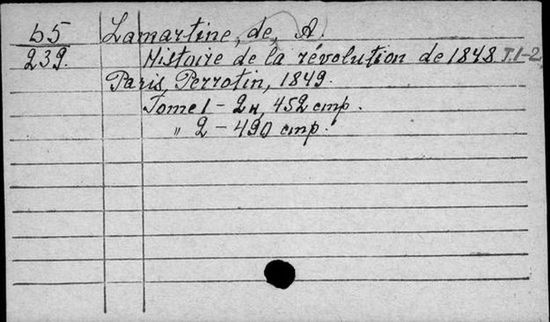 55 Lamartine, de, A.
239. Histoire de la révolution de 1848 T.1-2
Paris, Perrotin, 1849.
Tome 1 - 2н, 452 стр.
" 2 - 490 стр.